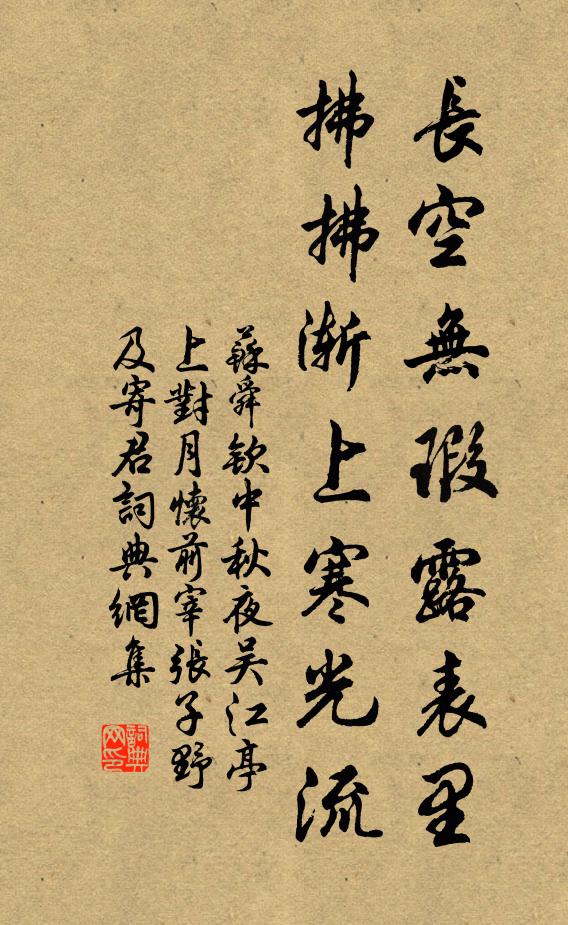 長空無瑕露表里
拂拂漸上寒光流
蘇舜欽中秋夜吴江亭
上對月懷前宰張子野
及寄君詞典網集
詞典
网印